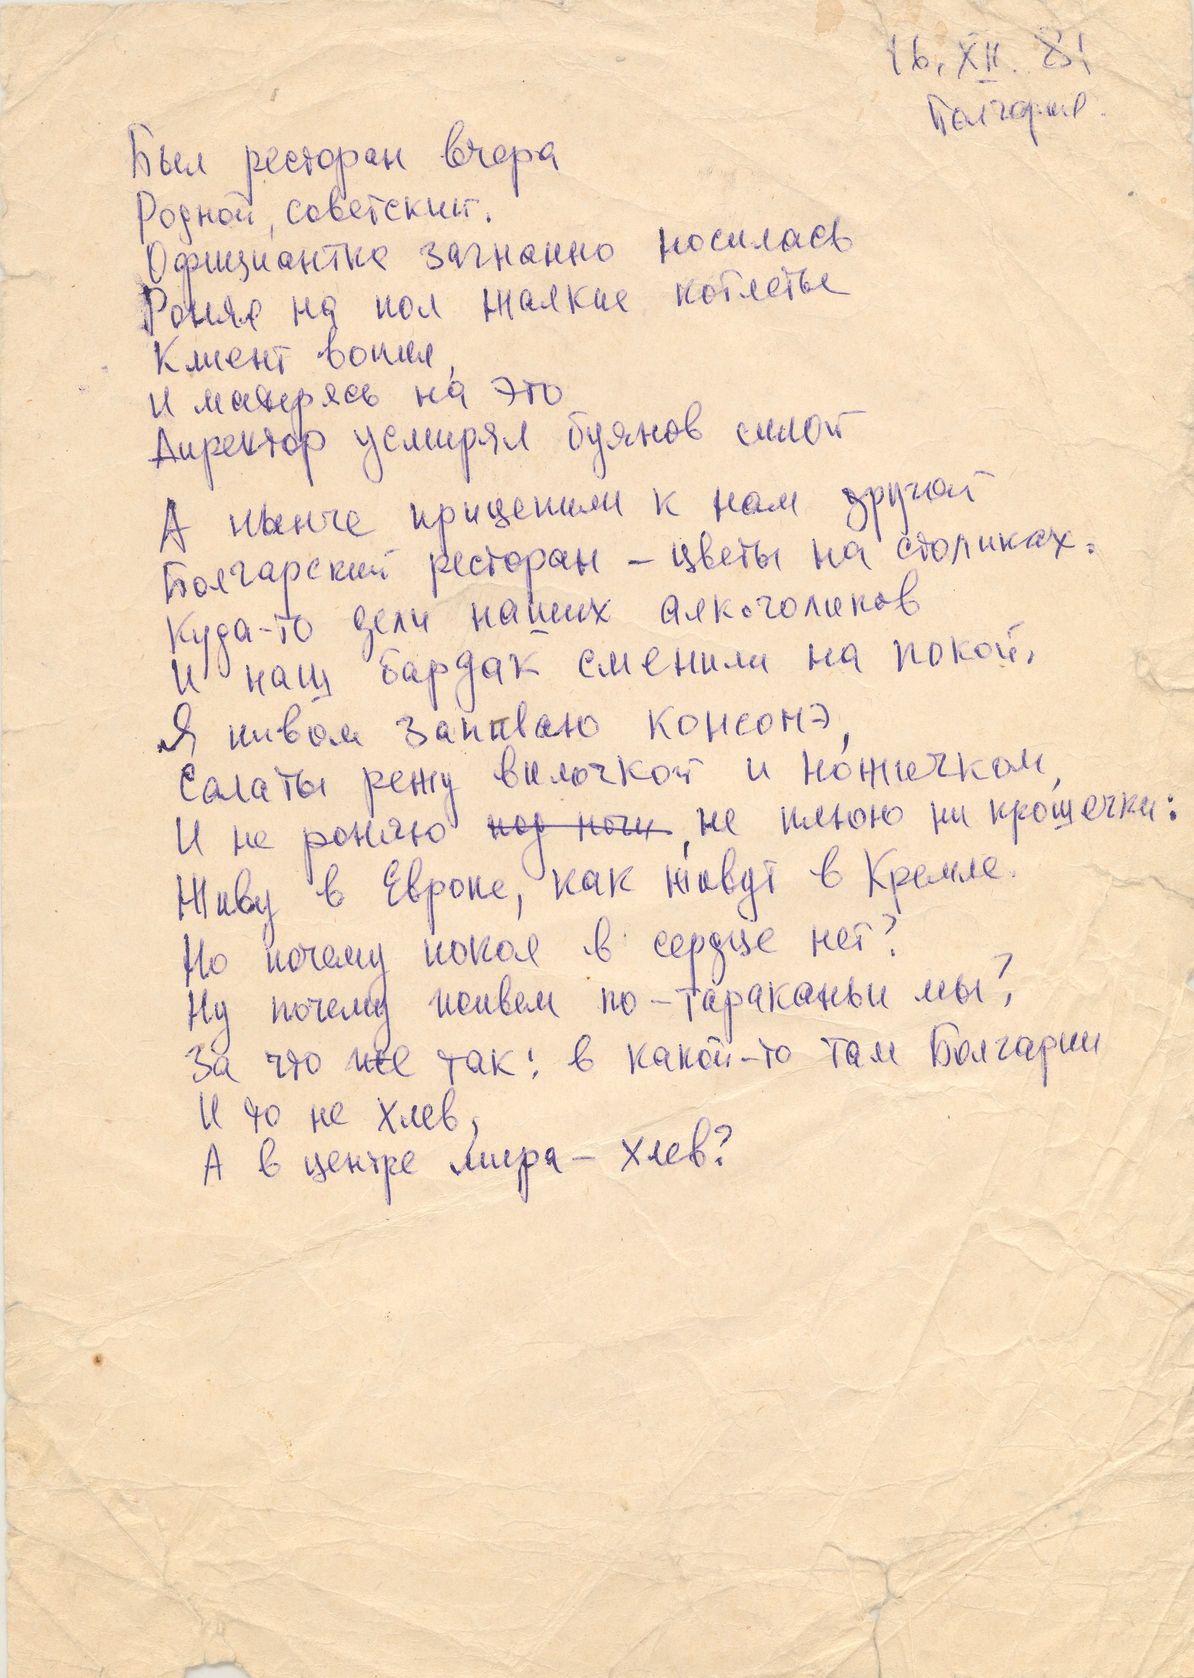 16. XII. 81
Болгария.
Был ресторан вчера
Родной, советский.
Официантка загнанно носилась
Роняя на пол жалкие котлеты
Клиент вопил,
и матерясь на это
Директор усмирял буянов силой
А нынче прицепили к нам другой
Болгарский ресторан – цветы на столиках.
Куда-то дели наших алкоголиков
И наш бардак сменили на покой.
Я пивом запиваю консомэ,
Салаты режу вилочкой и ножичком,
И не роняю под ноги, не плюю ни крошечки:
Живу в Европе, как живут в Кремле.
Но почему покоя в сердце нет?
Ну почему живем по-тараканьи мы?
За что же так: в какой-то там Болгарии
И то не хлев,
А в центре мира – хлев?